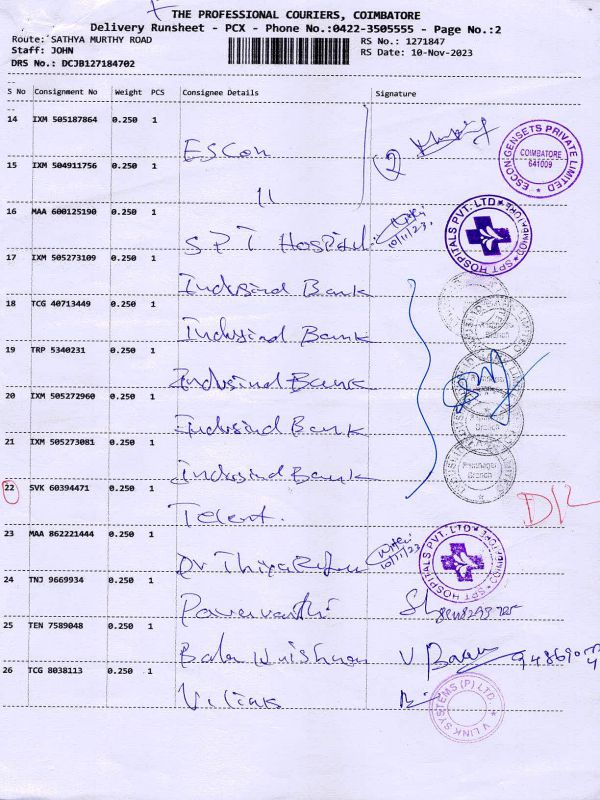 THE PROFESSIONAL COURIERS, COIMBATORE
Delivery Runsheet - PCX - Phone No.:0422-3505555 - Page No.:2
Route: SATHYA MURTHY ROAD
RS No.: 1271847
Staff: JOHN
RS Date: 10-Nov-2023
DRS No.: DCJB127184702
S No Consignment No Weight PCS Consignee Details Signature
14 IXM 505187864 0.250 1
ESCon
2
ESCON GENSETS PRIVATE LIMITED
COIMBATORE
641009
15 IXM 504911756 0.250 1
11
16 MAA 600125190 0.250 1
SPT Hospital
10/11/23
SPT HOSPITALS PVT. LTD
17 IXM 505273109 0.250 1
Indusind Bank
18 TCG 40713449 0.250 1
Indusind Bank
Branch
19 TRP 5340231 0.250 1
Indusind Bank
20 IXM 505272960 0.250 1
Indusind Bank
Branch
21 IXM 505273081 0.250 1
Indusind Bank
22 SVK 60394471 0.250 1
Telent.
D/L
23 MAA 862221444 0.250 1
10/11/23
SPT HOSPITALS PVT. LTD
24 TNJ 9669934 0.250 1
25 TEN 7589048 0.250 1
26 TCG 8038113 0.250 1
V LINK SYSTEMS (P) LTD.